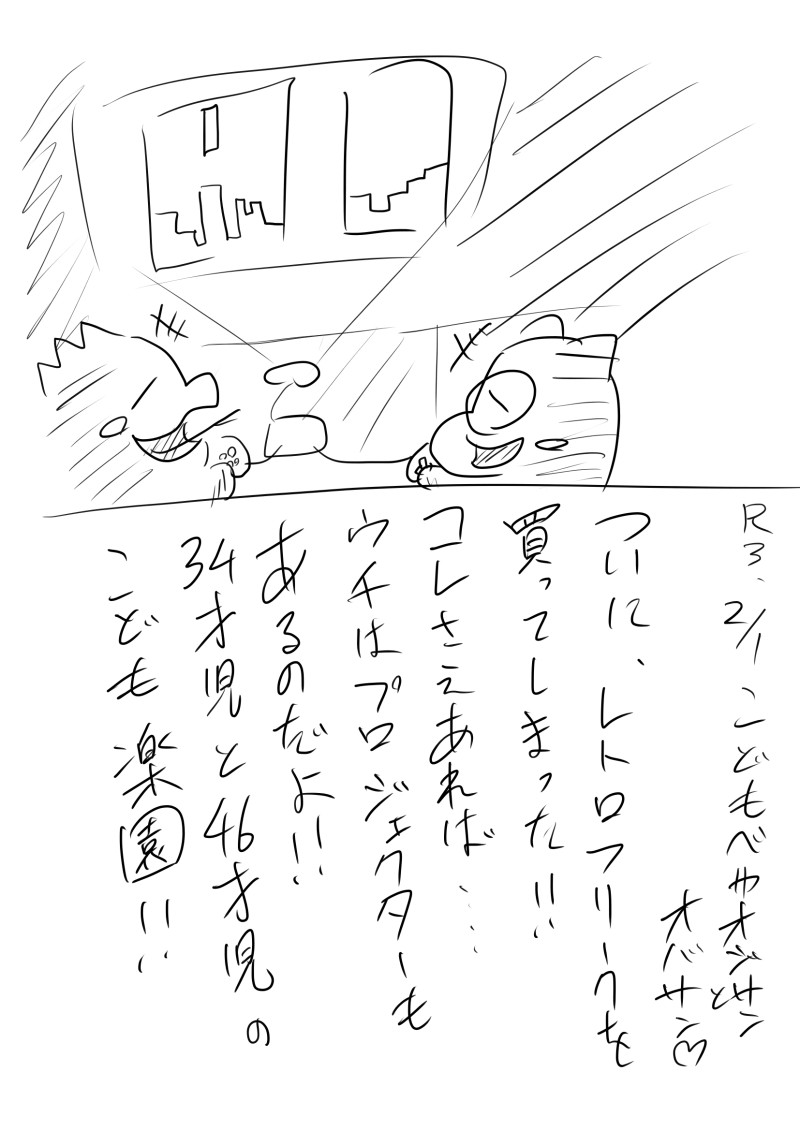 R3.2/1 こどもべやオジサンと
オバサン♡
ついに、レトロフリークを
買ってしまった!!
コレさえあれば…
ウチはプロジェクターも
あるのだよ!!
34才児と46才児の
こども楽園!!